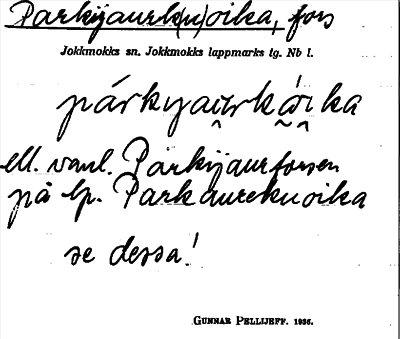 Parkijaurk(u)oika, fors
Jokkmokks sn. Jokkmokks lappmarks tg. Nb l.
párkyau̯rkǻ̰i̯ka
ell. vanl. Parkijaurforsen
på lp. Parkaurekuoika
se dessa!
GUNNAR PELLIJEFF. 1936.